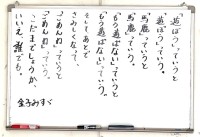 「遊ぼう」っていうと
「遊ぼう」っていう。
「馬鹿」っていうと
「馬鹿」っていう。
「もう遊ばない」っていうと
「もう遊ばない」っていう。
そしてあとで
さみしくなって、
「ごめんね」っていうと
「ごめんね」っていう。
こだまでしょうか、
いいえ、誰でも。
金子みすゞ